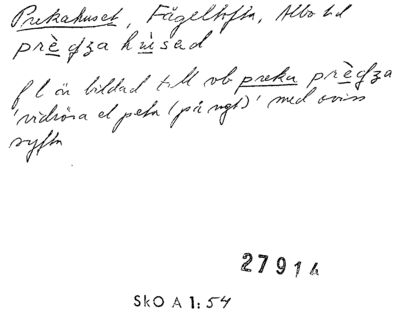 Prekahuset, Fågeltofta, Albo hd
prègza húsad
fl är bildad till vb preka prègza
'vidröra el peta (på ngt)' med oviss
syftn
27914
SkO A 1:54